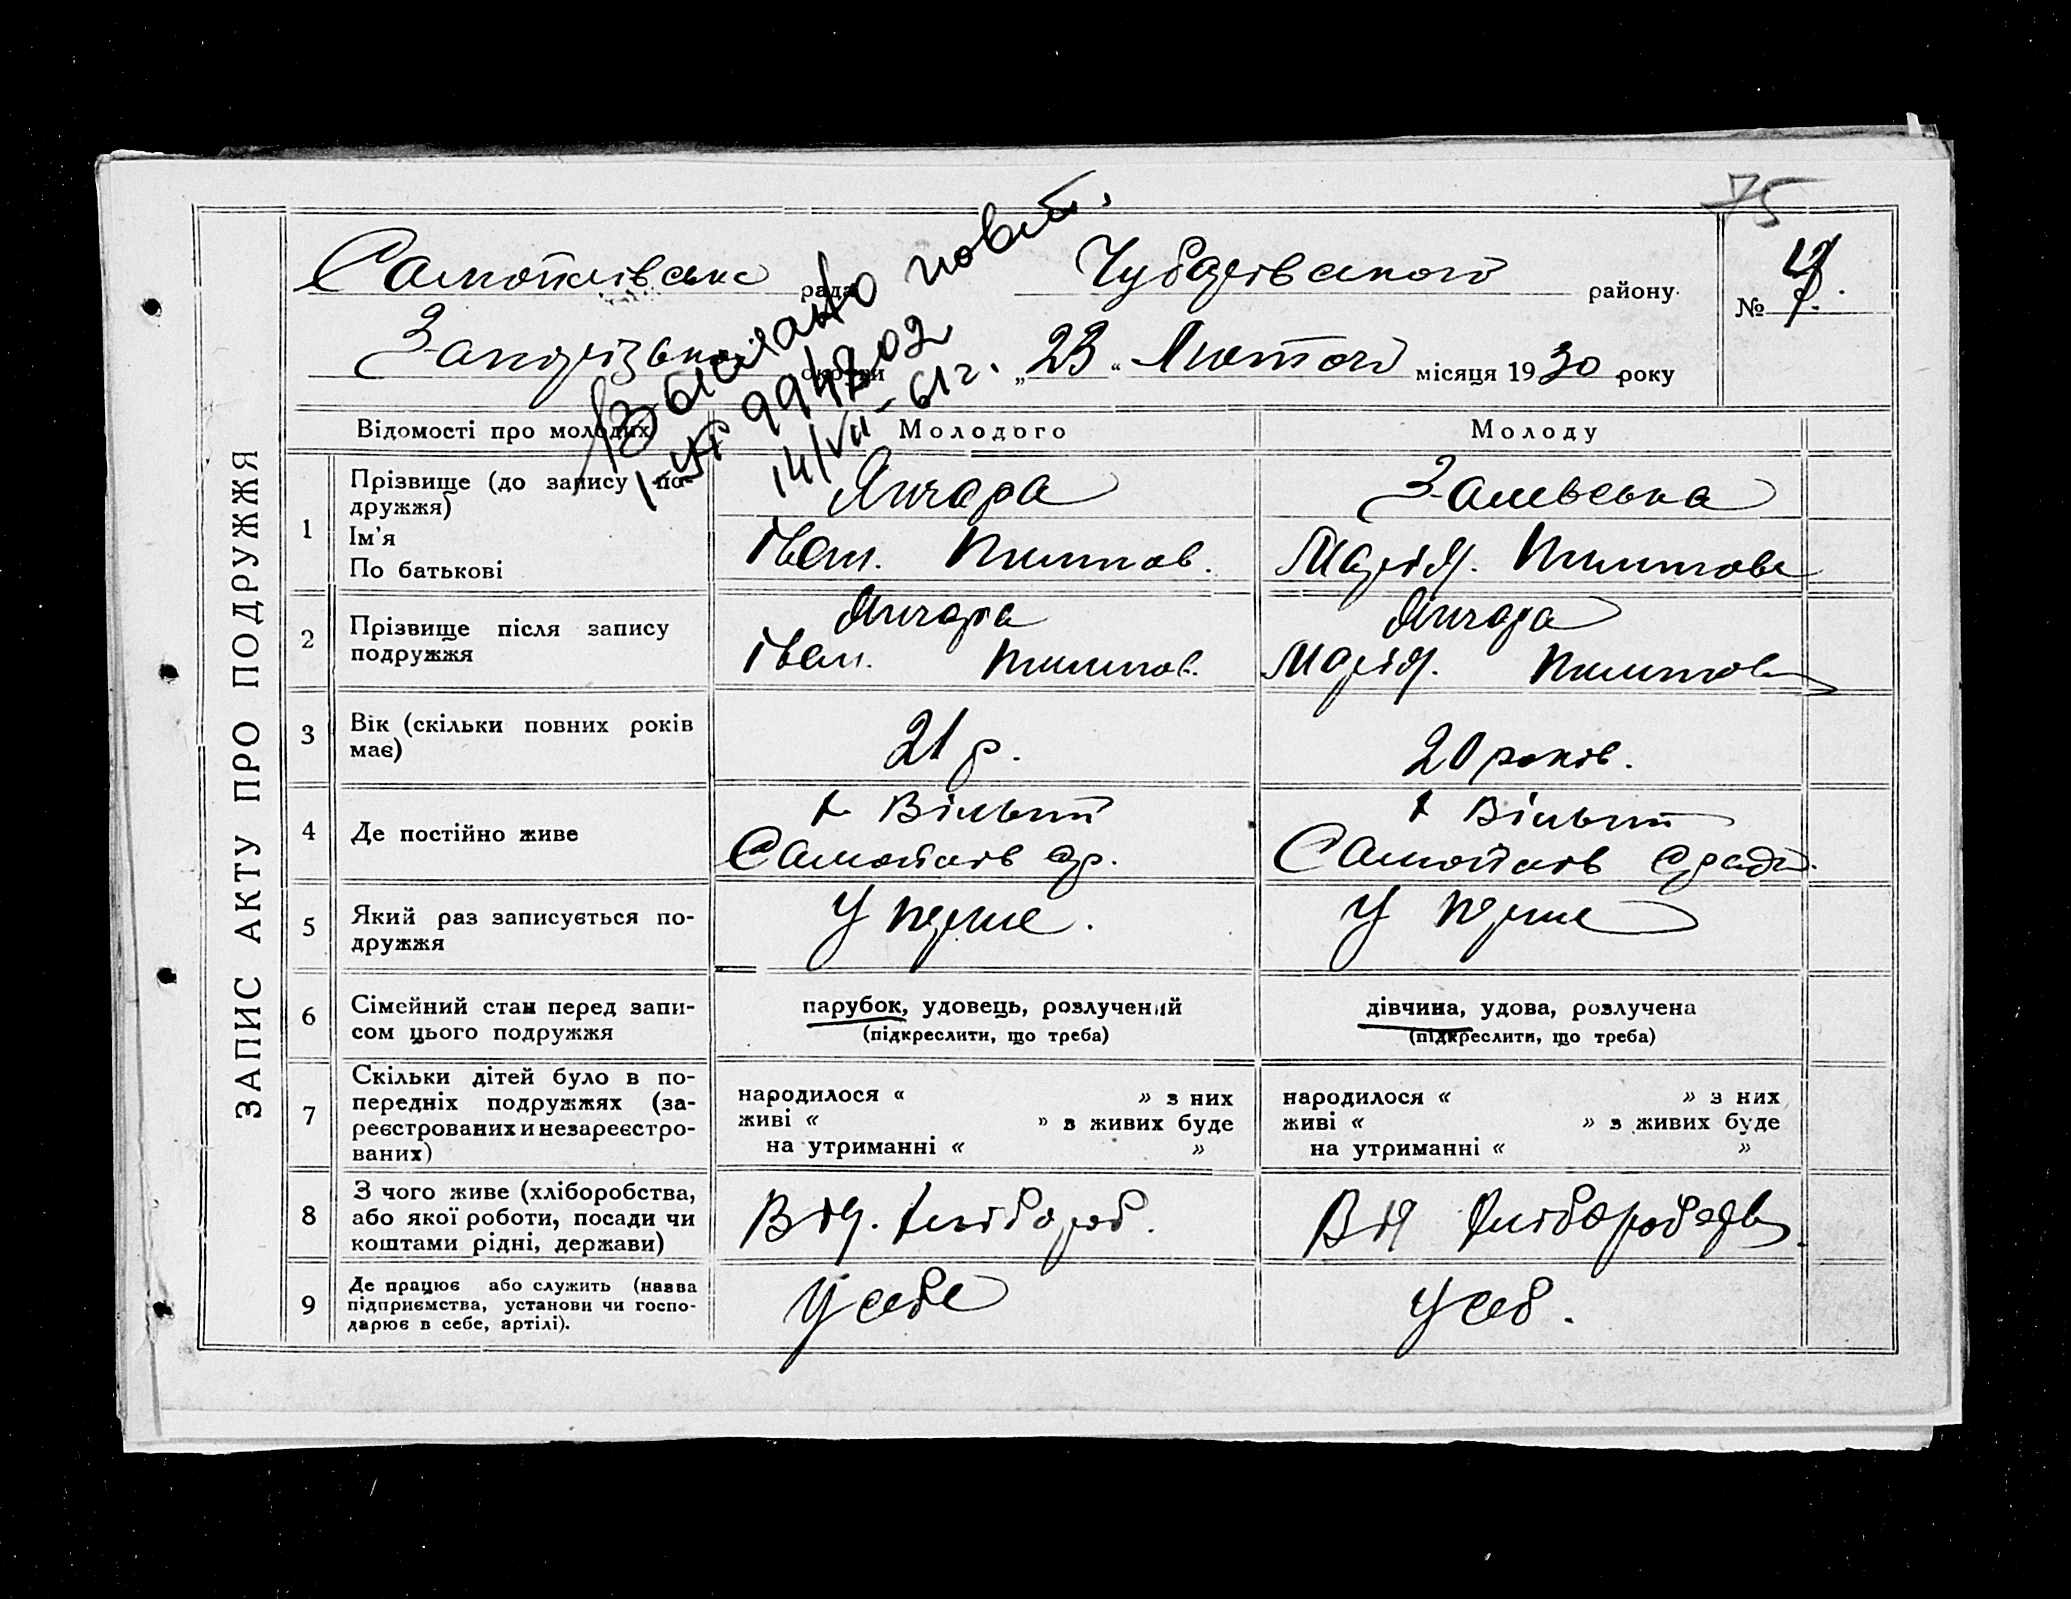 75
Самойлівська рада Чубарівського району
№ 7.
Запорізько округи „23“ Лютого місяця 1930 року
Вислано повт.
І-ЖГ 994702
14/VII-61 г.
ЗАПИС АКТУ ПРО ПОДРУЖЖЯ
Відомості про молодих Молодого Молоду
1 Прізвище (до запису по-
дружжя)
Ім'я
По батькові
Янчара
Іван. Пилипов.
Залевська
Марія. Пилипова
2 Прізвище після запису
подружжя
Янчара
Іван. Пилипов.
Янчара
Марія. Пилипов
3 Вік (скільки повних років
має)
21 р.
20 років.
4 Де постійно живе
х Вільний
Самойлів ср.
х Вільний
Самойлів сради.
5 Який раз записується по-
дружжя
У перше.
У перше
6 Сімейний стан перед запи-
сом цього подружжя
парубок, удовець, розлучений
(підкреслити, що треба)
дівчина, удова, розлучена
(підкреслити, що треба)
7 Скільки дітей було в по-
передніх подружжях (за-
реєстрованих и незареєстро-
ваних)
народилося « » з них
живі « » з живих буде
на утриманні « »
народилося « » з них
живі « » з живих буде
на утриманні « »
8 З чого живе (хліборобства,
або якої роботи, посади чи
коштами рідні, держави)
Від. хлібороб.
Від
9 Де працює або служить (назва
підприємства, установи чи госпо-
дарює в себе, артілі).
У себе
У себ.